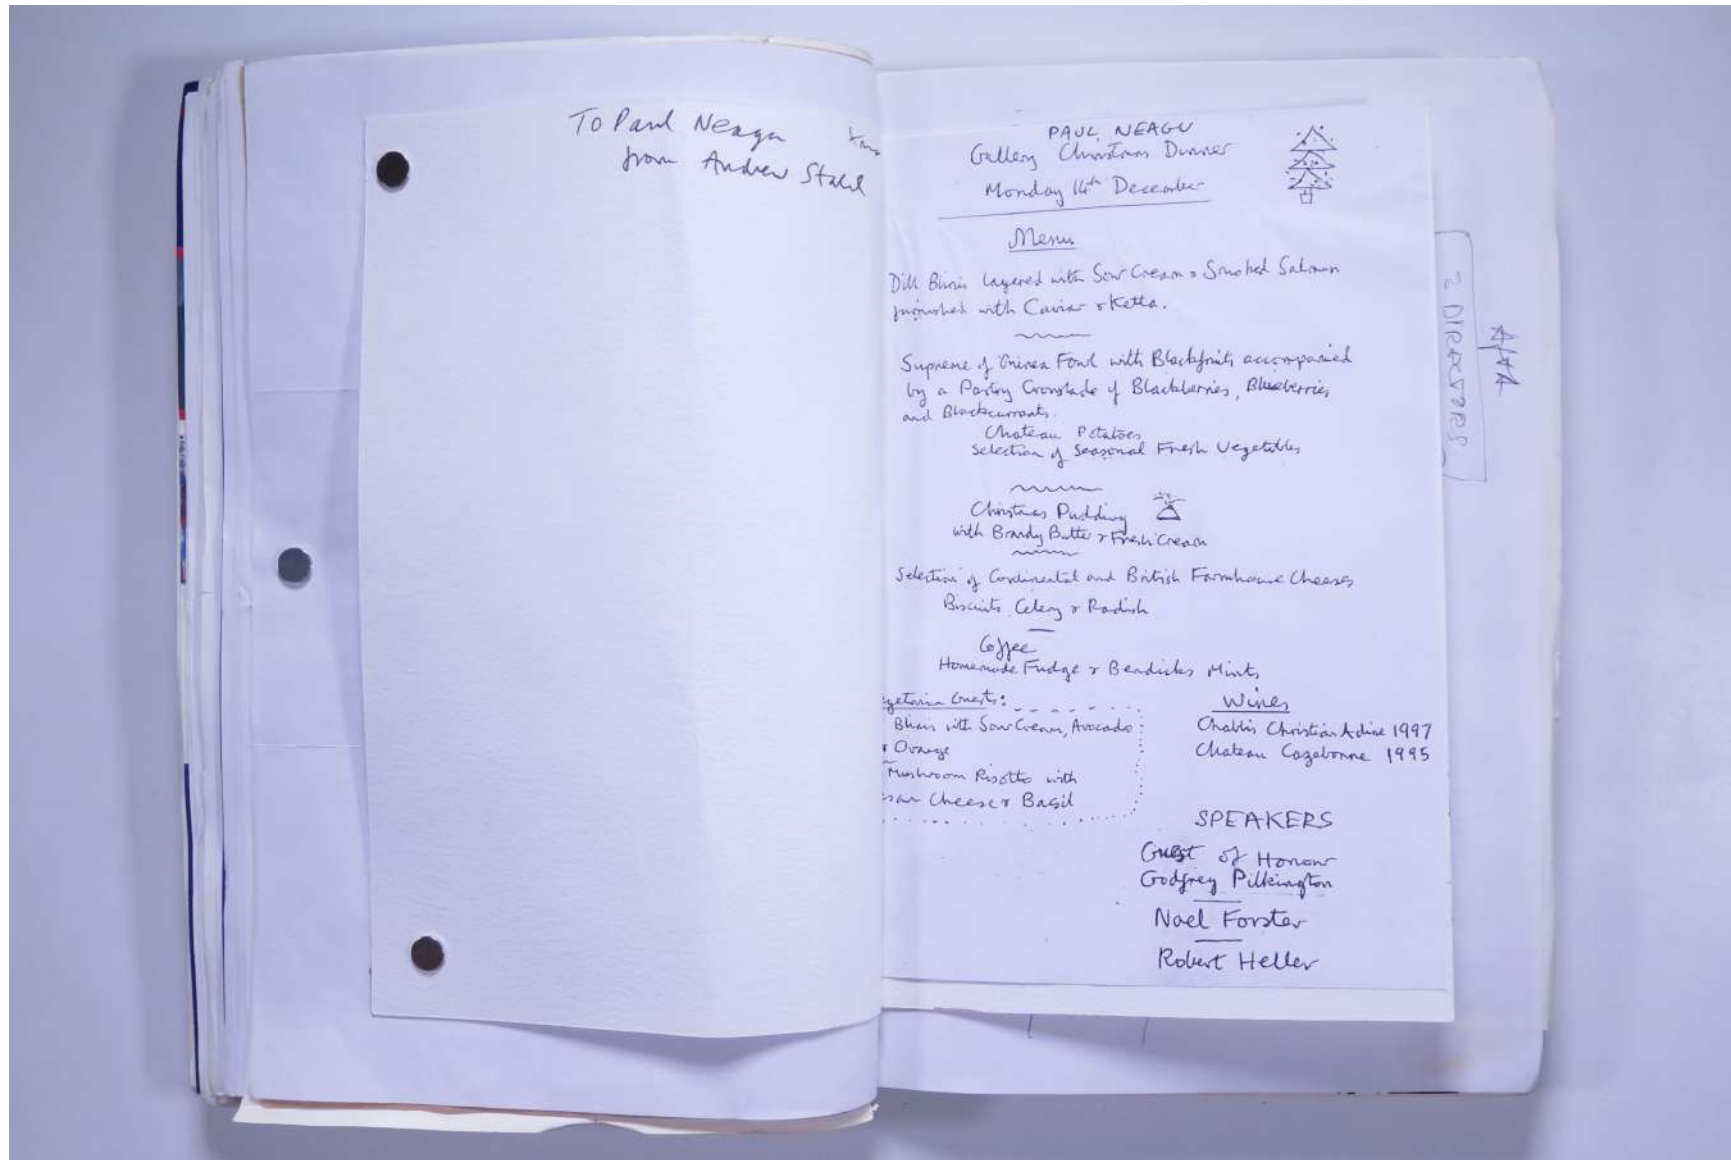 To Paul Neagu
from Andrew Stahl
PAUL NEAGU
Gallery Christmas Dinner
Monday 14th December
Menu
Dill Blinis layered with Sour Cream & Smoked Salmon
furnished with Caviar & Ketta.
Supreme of Guinea Fowl with Blackfruits accompanied
by a Pastry Croustade of Blackberries, Blueberries
and Blackcurrants.
Chateau Potatoes
Selection of Seasonal Fresh Vegetables
Christmas Pudding
with Brandy Butter & Fresh Cream
Selection of Continental and British Farmhouse Cheeses
Biscuits, Celery & Radish
Coffee
Homemade Fudge & Bendicks Mints
getarian Guests:
Blinis with Sour Cream, Avocado
& Orange
Mushroom Risotto with
esan Cheese & Basil
Wines
Chablis Christian Adine 1997
Chateau Cazebonne 1995
SPEAKERS
Guest of Honour
Godfrey Pilkington
Noel Forster
Robert Heller
2 DIRECTORS